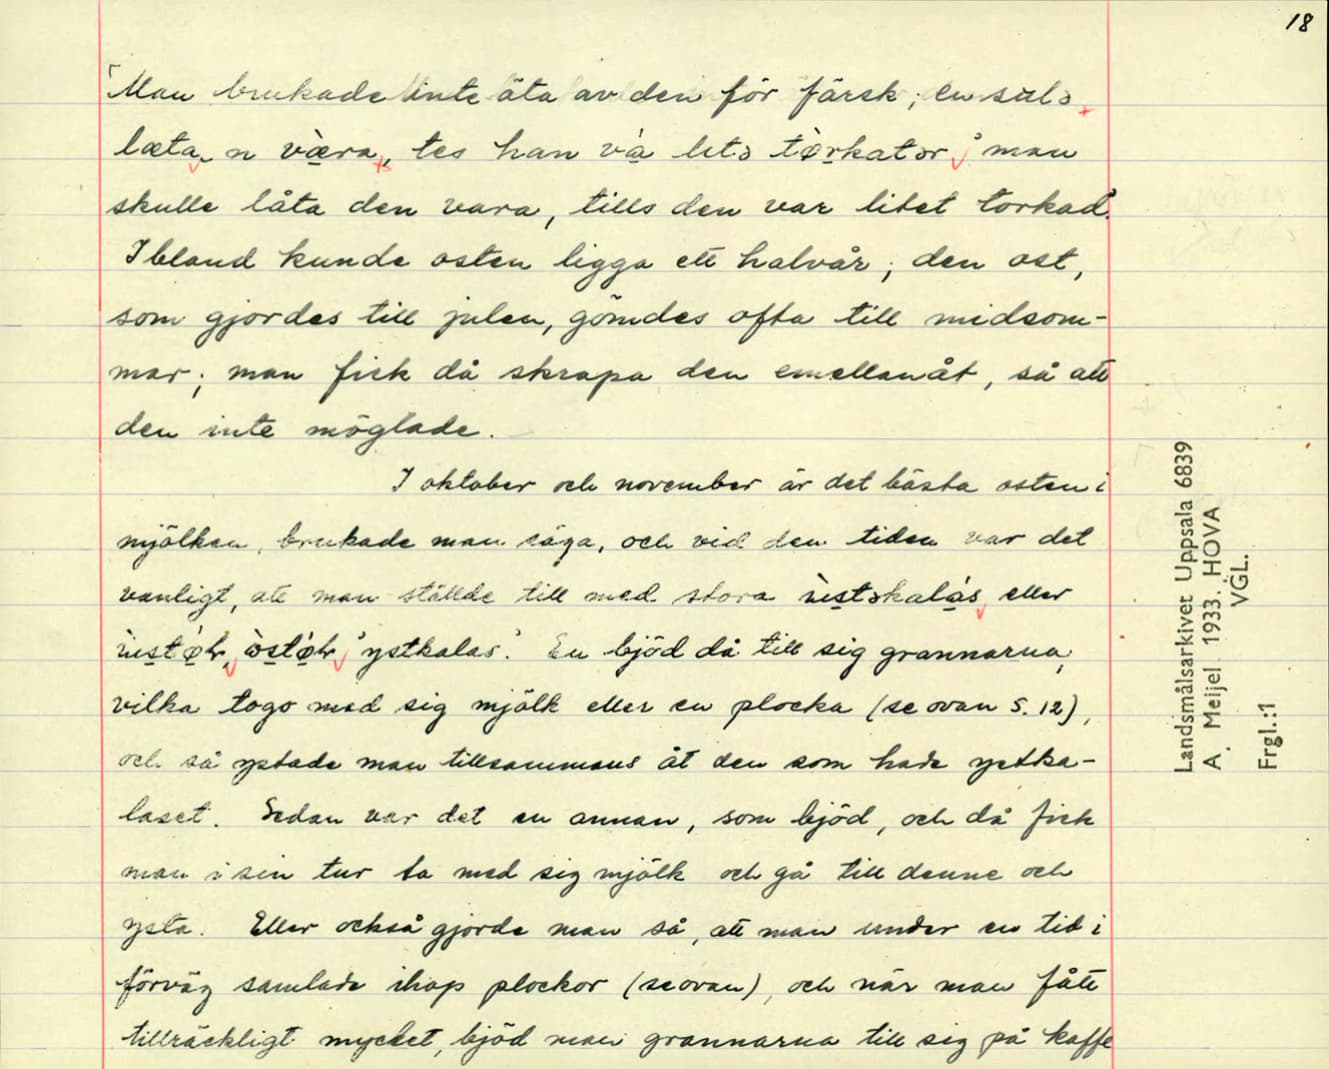 18
Man brukade inte äta av den för färsk; en sulə
læta n væ̀ra, tes han vá litə tø̀rkatər 'man
skulle låta den vara, tills den var litet torkad'.
Ibland kunde osten ligga ett halvår; den ost,
som gjordes till julen, gömdes ofta till midsom-
mar; man fick då skrapa den emellanåt, så att
den inte möglade.
I oktober och november är det bästa osten i
mjölken, brukade man säga, och vid den tiden var det
vanligt, att man ställde till med stora eller
'ystkalas'. En bjöd då till sig grannarna,
vilka togo med sig mjölk eller en plocka (se ovan s. 12),
och så ystade man tillsammans åt den som hade ystka-
laset. Sedan var det en annan, som bjöd, och då fick
man i sin tur ta med sig mjölk och gå till denne och
ysta. Eller också gjorde man så, att man under en tid i
förväg samlade ihop plockor (se ovan), och när man fått
tillräckligt mycket, bjöd man grannarna till sig på kaffe
Landsmålsarkivet Uppsala 6839
A. Meijel. 1933. HOVA
VGL.
Frgl.:1